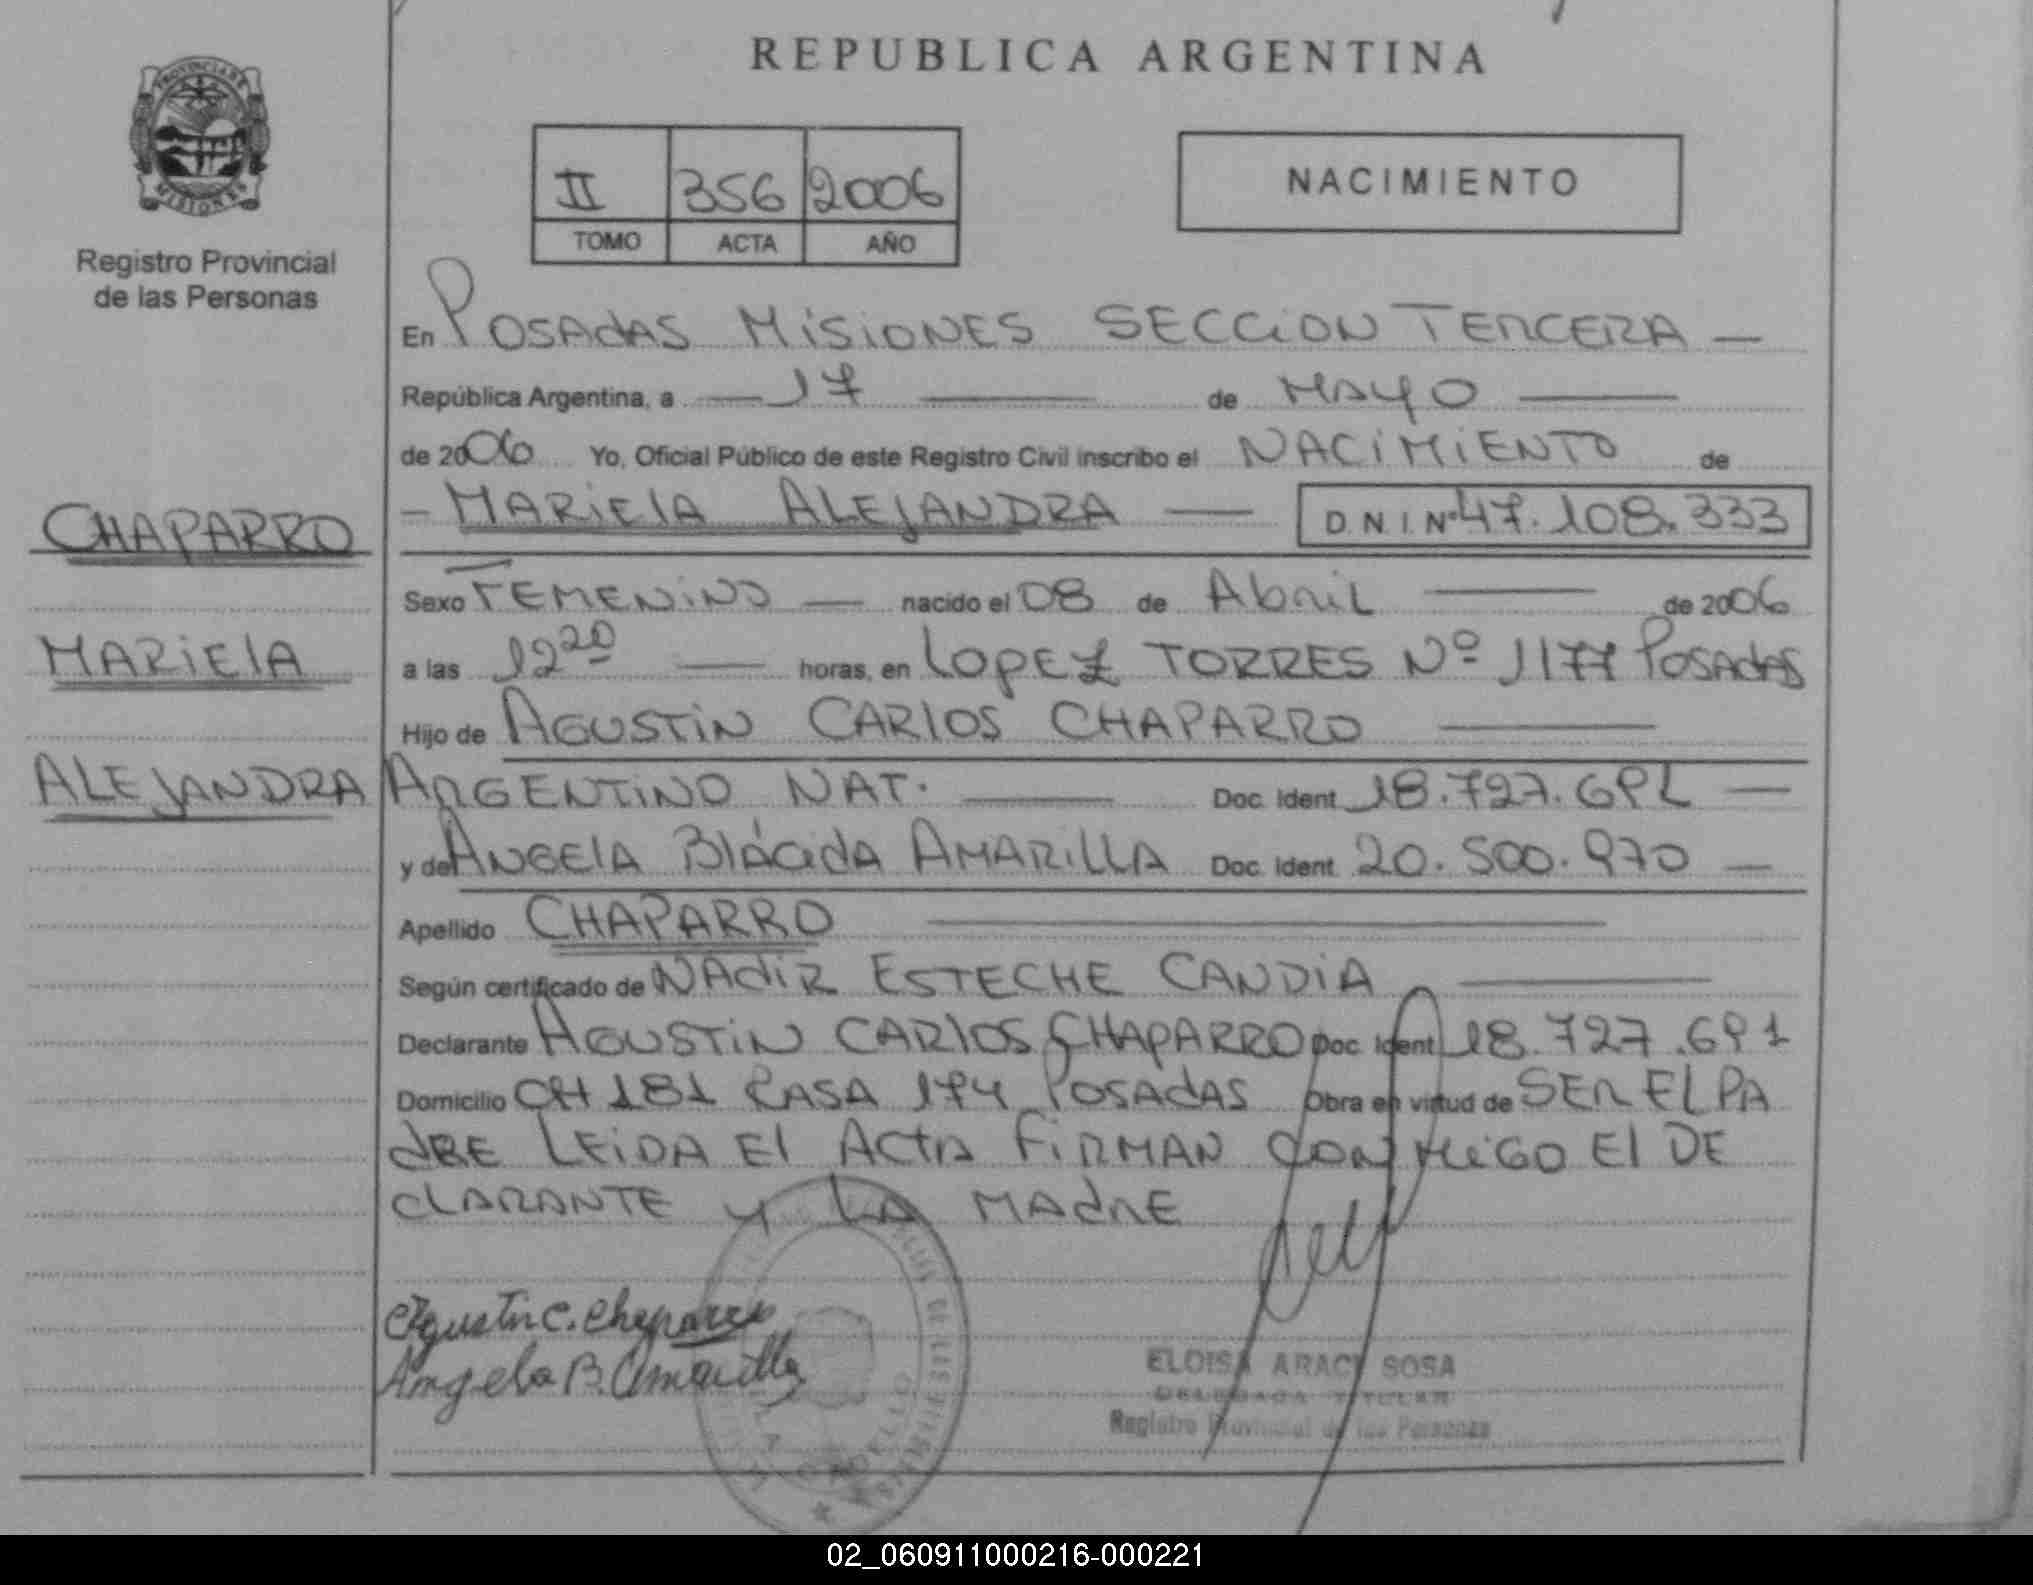 REPUBLICA ARGENTINA
PROVINCIA DE
MISIONES
Registro Provincial
de las Personas
II 356 2006
TOMO ACTA AÑO
NACIMIENTO
En POSAdAS MiSiONES SECCiON TERCERA —
República Argentina, a — 17 — de MAyO —
de 2006 Yo, Oficial Público de este Registro Civil inscribo el NACiMiENTO de
— MARiElA ALEJANDRA — D.N.I. Nº 47.108.333
CHAPARRO
MARiElA
ALEJANDRA
Sexo FEMENiNO — nacido el 08 de AbRiL — de 2006
a las 12 20 — horas, en LOPEZ TORRES Nº 1177 POSAdAS
Hijo de AGUSTiN CARlOS CHAPARRO —
ARGENTiNO NAT. — Doc. Ident. 18.727.691 —
y de ANGElA BlÁCidA AMARiLLA Doc. Ident. 20.500.970 —
Apellido CHAPARRO —
Según certificado de NAdiR ESTECHE CANDiA —
Declarante AGUSTiN CARlOS CHAPARRO Doc. Ident. 18.727.691
Domicilio CH 181 CASA 174 POSAdAS Obra en virtud de SER El PA
dRE LEiDA El ACTA FiRMAN CONMiGO El DE
ClARANTE y LA MAdRE
Agustin C. Chaparro
Angela B. Amarilla
ELOISA ARACI SOSA
DELEGADA TITULAR
Registro Provincial de las Personas
02_060911000216-000221